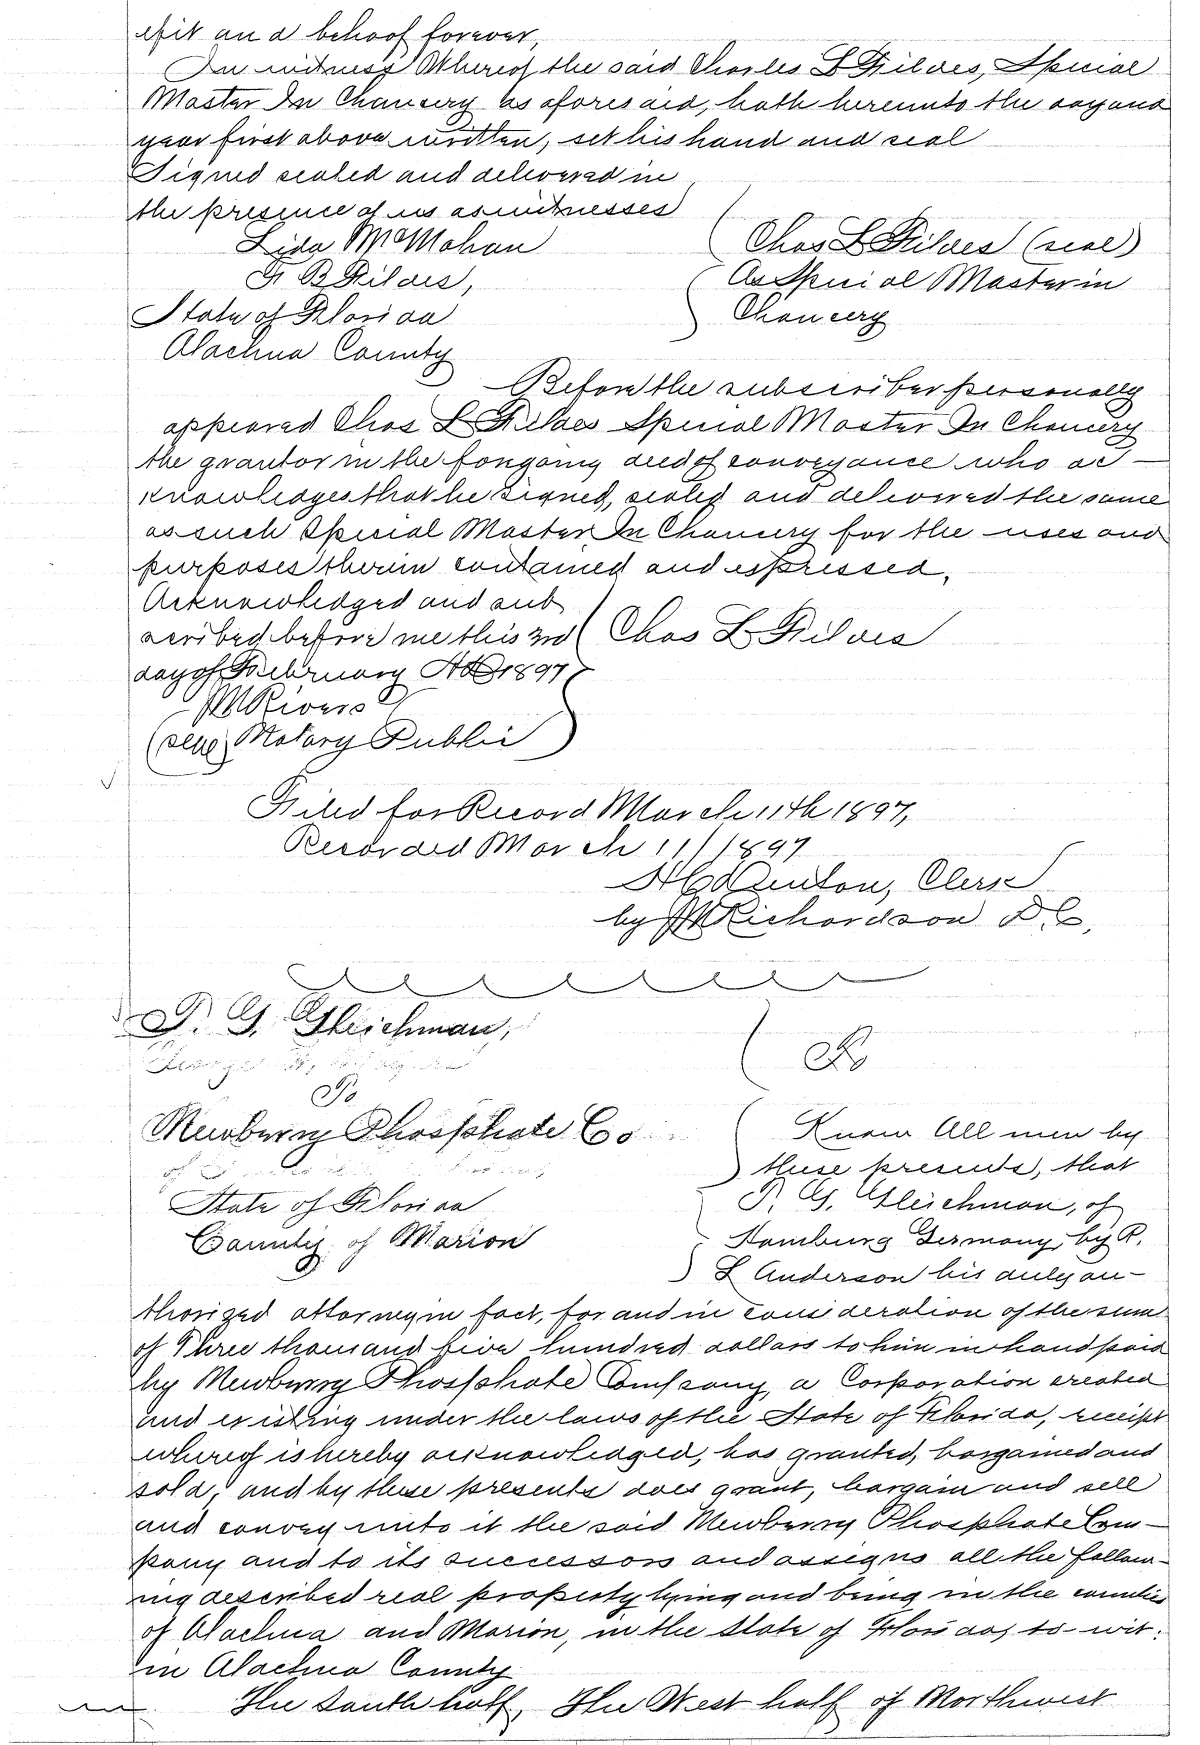 efit and behoof forever,
In witness Whereof the said Charles L Fildes, Special
Master In Chancery as aforesaid, hath hereunto the day and
year first above written, set his hand and seal
Signed sealed and delivered in
the presence of us as witnesses
Lida McMahan
F. B Fildes,
Chas L Fildes (seal)
As Special Master in
Chancery
State of Florida
Alachua County
Before the subscriber personally
appeared Chas L Fildes Special Master In Chancery
the grantor in the foregoing deed of conveyance who ac-
knowledges that he signed, sealed and delivered the same
as such Special Master In Chancery for the uses and
purposes therein contained and expressed.
Acknowledged and sub
scribed before me this 3rd
day of February AD 1897
Chas L Fildes
M Rivers
(seal) Notary Public
Filed for Record March 11th 1897,
Recorded March 11/1897
Denton, Clerk
by Richardson D.C.
P. G. Gleichman,
To
Newberry Phosphate Co
State of Florida
County of Marion
Know All men by
these presents, that
P. G. Gleichman, of
Hamburg Germany, by R.
L Anderson his duly au-
thorized attorney in fact, for and in consideration of the sum
of Three thousand five hundred dollars to him in hand paid
by Newberry Phosphate Company, a Corporation created
and existing under the laws of the State of Florida, receipt
whereof is hereby acknowledged, has granted, bargained and
sold, and by these presents does grant, bargain and sell
and convey unto it the said Newberry Phosphate Com-
pany and to its successors and assigns all the follow-
ing described real property lying and being in the counties
of Alachua and Marion, in the State of Florida, to-wit:
in Alachua County
The South half, The West half of Northwest